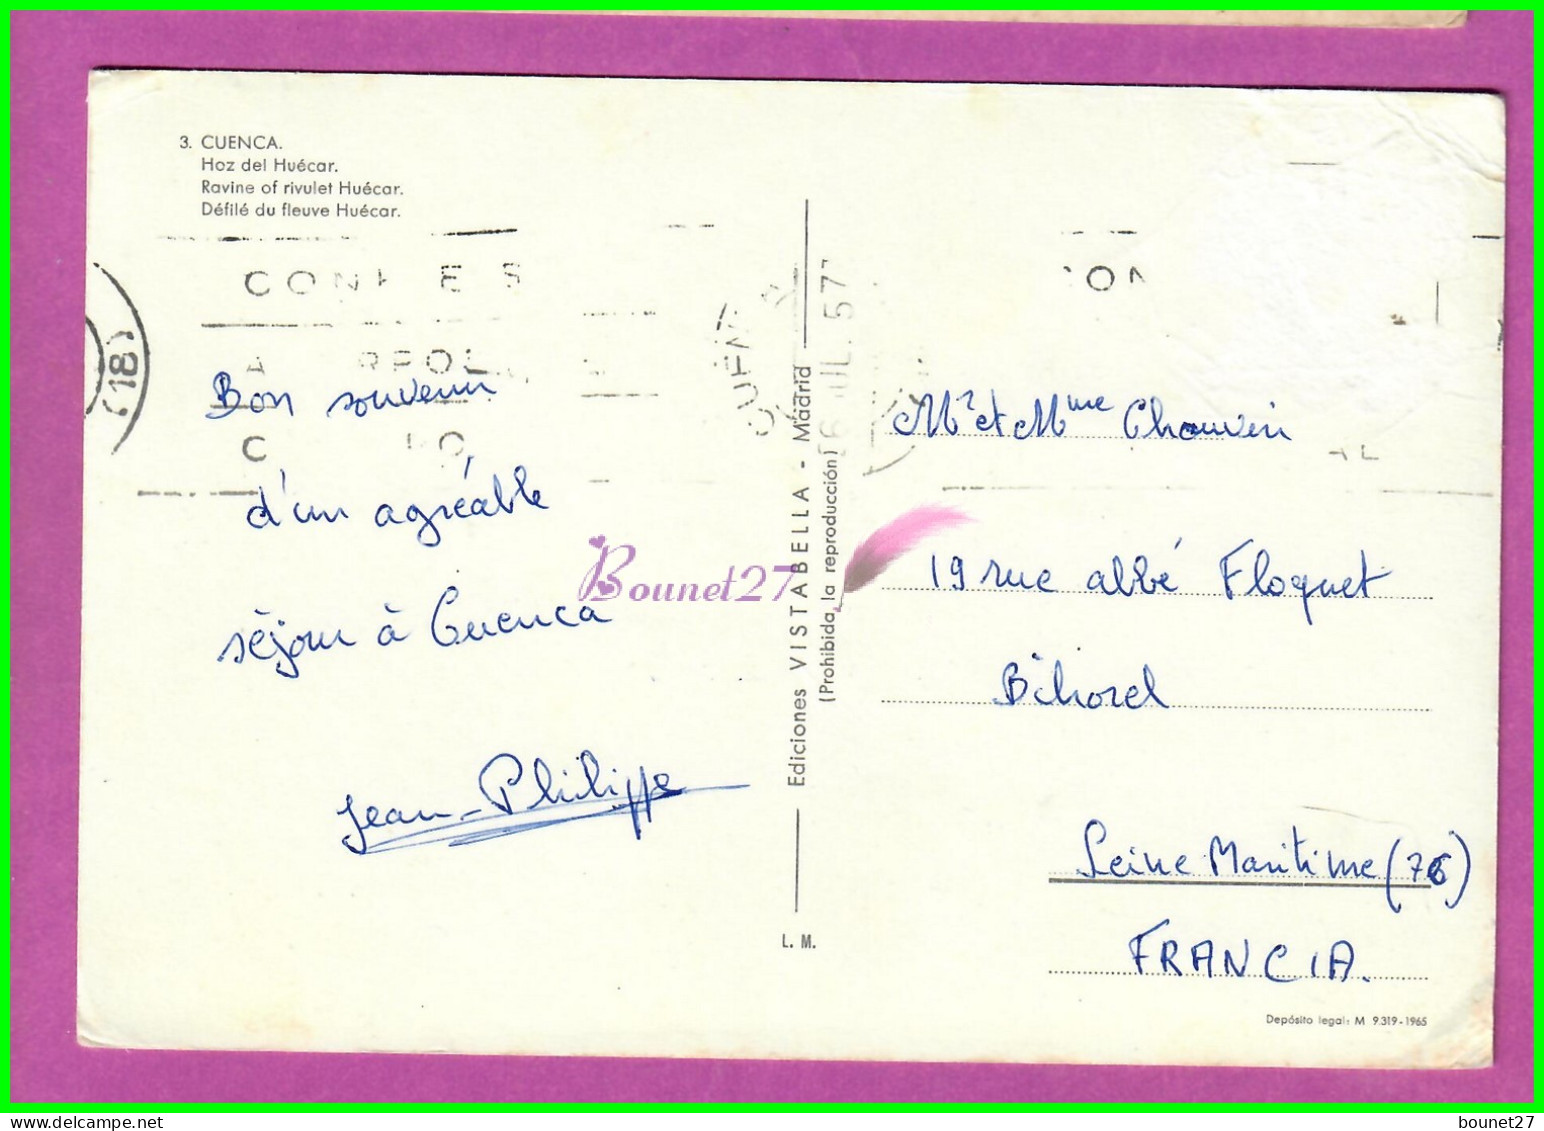 3. CUENCA.
Hoz del Huécar.
Ravine of rivulet Huécar.
Défilé du fleuve Huécar.
(18)
Bon souvenir
d'un agréable
séjour à Cuenca
Jean-Philippe
Ediciones VISTABELLA - Madrid
(Prohibida la reproducción)
L. M.
Bounet27
Mr et Mme Chauvin
19 rue abbé Floquet
Bihorel
Seine Maritime (76)
FRANCIA.
Depósito legal: M 9.319-1965
bounet27